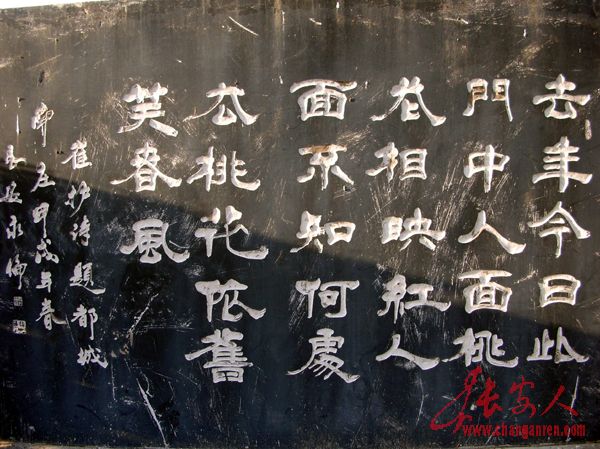 去年今日此
門中人面桃
花相映紅人
面不知何處
去桃花依舊
笑春風
崔护诗題都城
南庄甲戌年春
长安人
www.changanren.com